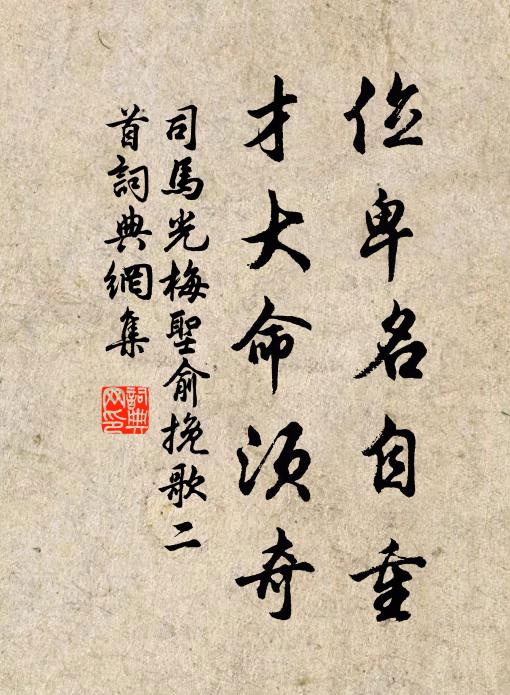 位卑名自重
才大命須奇
司馬光梅聖俞挽歌二
首詞典網集
詞典
网印